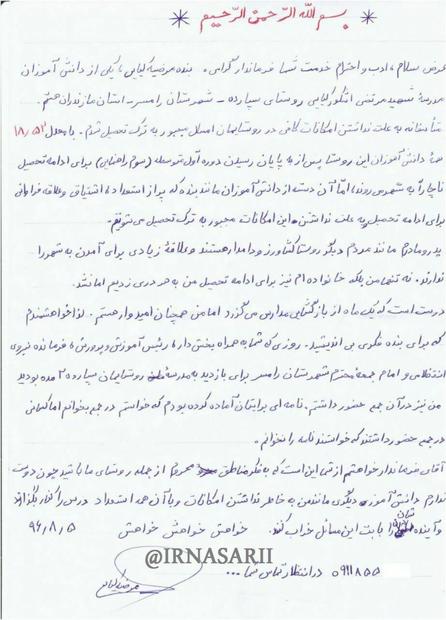 * بسم الله الرحمن الرحیم *
عرض سلام، ادب و احترام خدمت شما فرماندار گرامی. بنده مرضیه کیایی، یکی از دانش آموزان
مدرسهٔ شهید مرتضی اشکور کیایی روستای سپارده - شهرستان رامسر - استان مازندران هستم.
متأسفانه به علت نداشتن امکانات کافی در روستایمان امسال مجبور به ترک تحصیل شدم. با معدل ۱۸/۵۳
همهٔ دانش آموزان این روستا پس از به پایان رسیدن دوره اول متوسطه (سوم راهنمایی) برای ادامه تحصیل
ناچاراً به شهر می روند، امّا آن دسته از دانش آموزان مانند بنده که پر از استعداد، اشتیاق و علاقه فراوانی
برای ادامه تحصیل به علت نداشتن این امکانات مجبور به ترک تحصیل می شویم.
پدر و مادرم مانند مردم دیگر روستا کشاورز و دامدار هستند و علاقهٔ زیادی برای آمدن به شهر را
ندارند. نه تنها من بلکه خانواده ام نیز برای ادامه تحصیل من به هر دری زدیم اما نشد.
درست است که یک ماه از بازگشایی مدارس می گذرد اما من همچنان امیدوار هستم. لذا خواهشمندم
که برای بنده فکری بی اندیشید. روزی که شما به همراه بخش دار، رئیس آموزش و پرورش، فرمانده نیروی
انتظامی و امام جمعهٔ محترم شهرستان رامسر برای بازدید به مدرسهٔ روستایمان سپارده آمده بودید
من نیز در آن جمع حضور داشتم. نامه ای برایتان آماده کرده بودم که خواستم در جمع بخوانم اما کسانی
در جمع حضور داشتند که خواستند نامه را نخوانم.
آقای فرماندار خواهشم از شما این است که به فکر مناطق محروم از جمله روستای ما باشید چون دوست
ندارم دانش آموز دیگری مانند من به خاطر نداشتن امکانات و با آن همه استعداد درس را کنار بگذارد
و آینده شان را بابت این مسائل خراب کند. خواهش خواهش خواهش ۹۶/۸/۵
@IRNASARII
در انتظار تماس شما... ۰۹۱۱۸۵۵
مرضیه کیایی